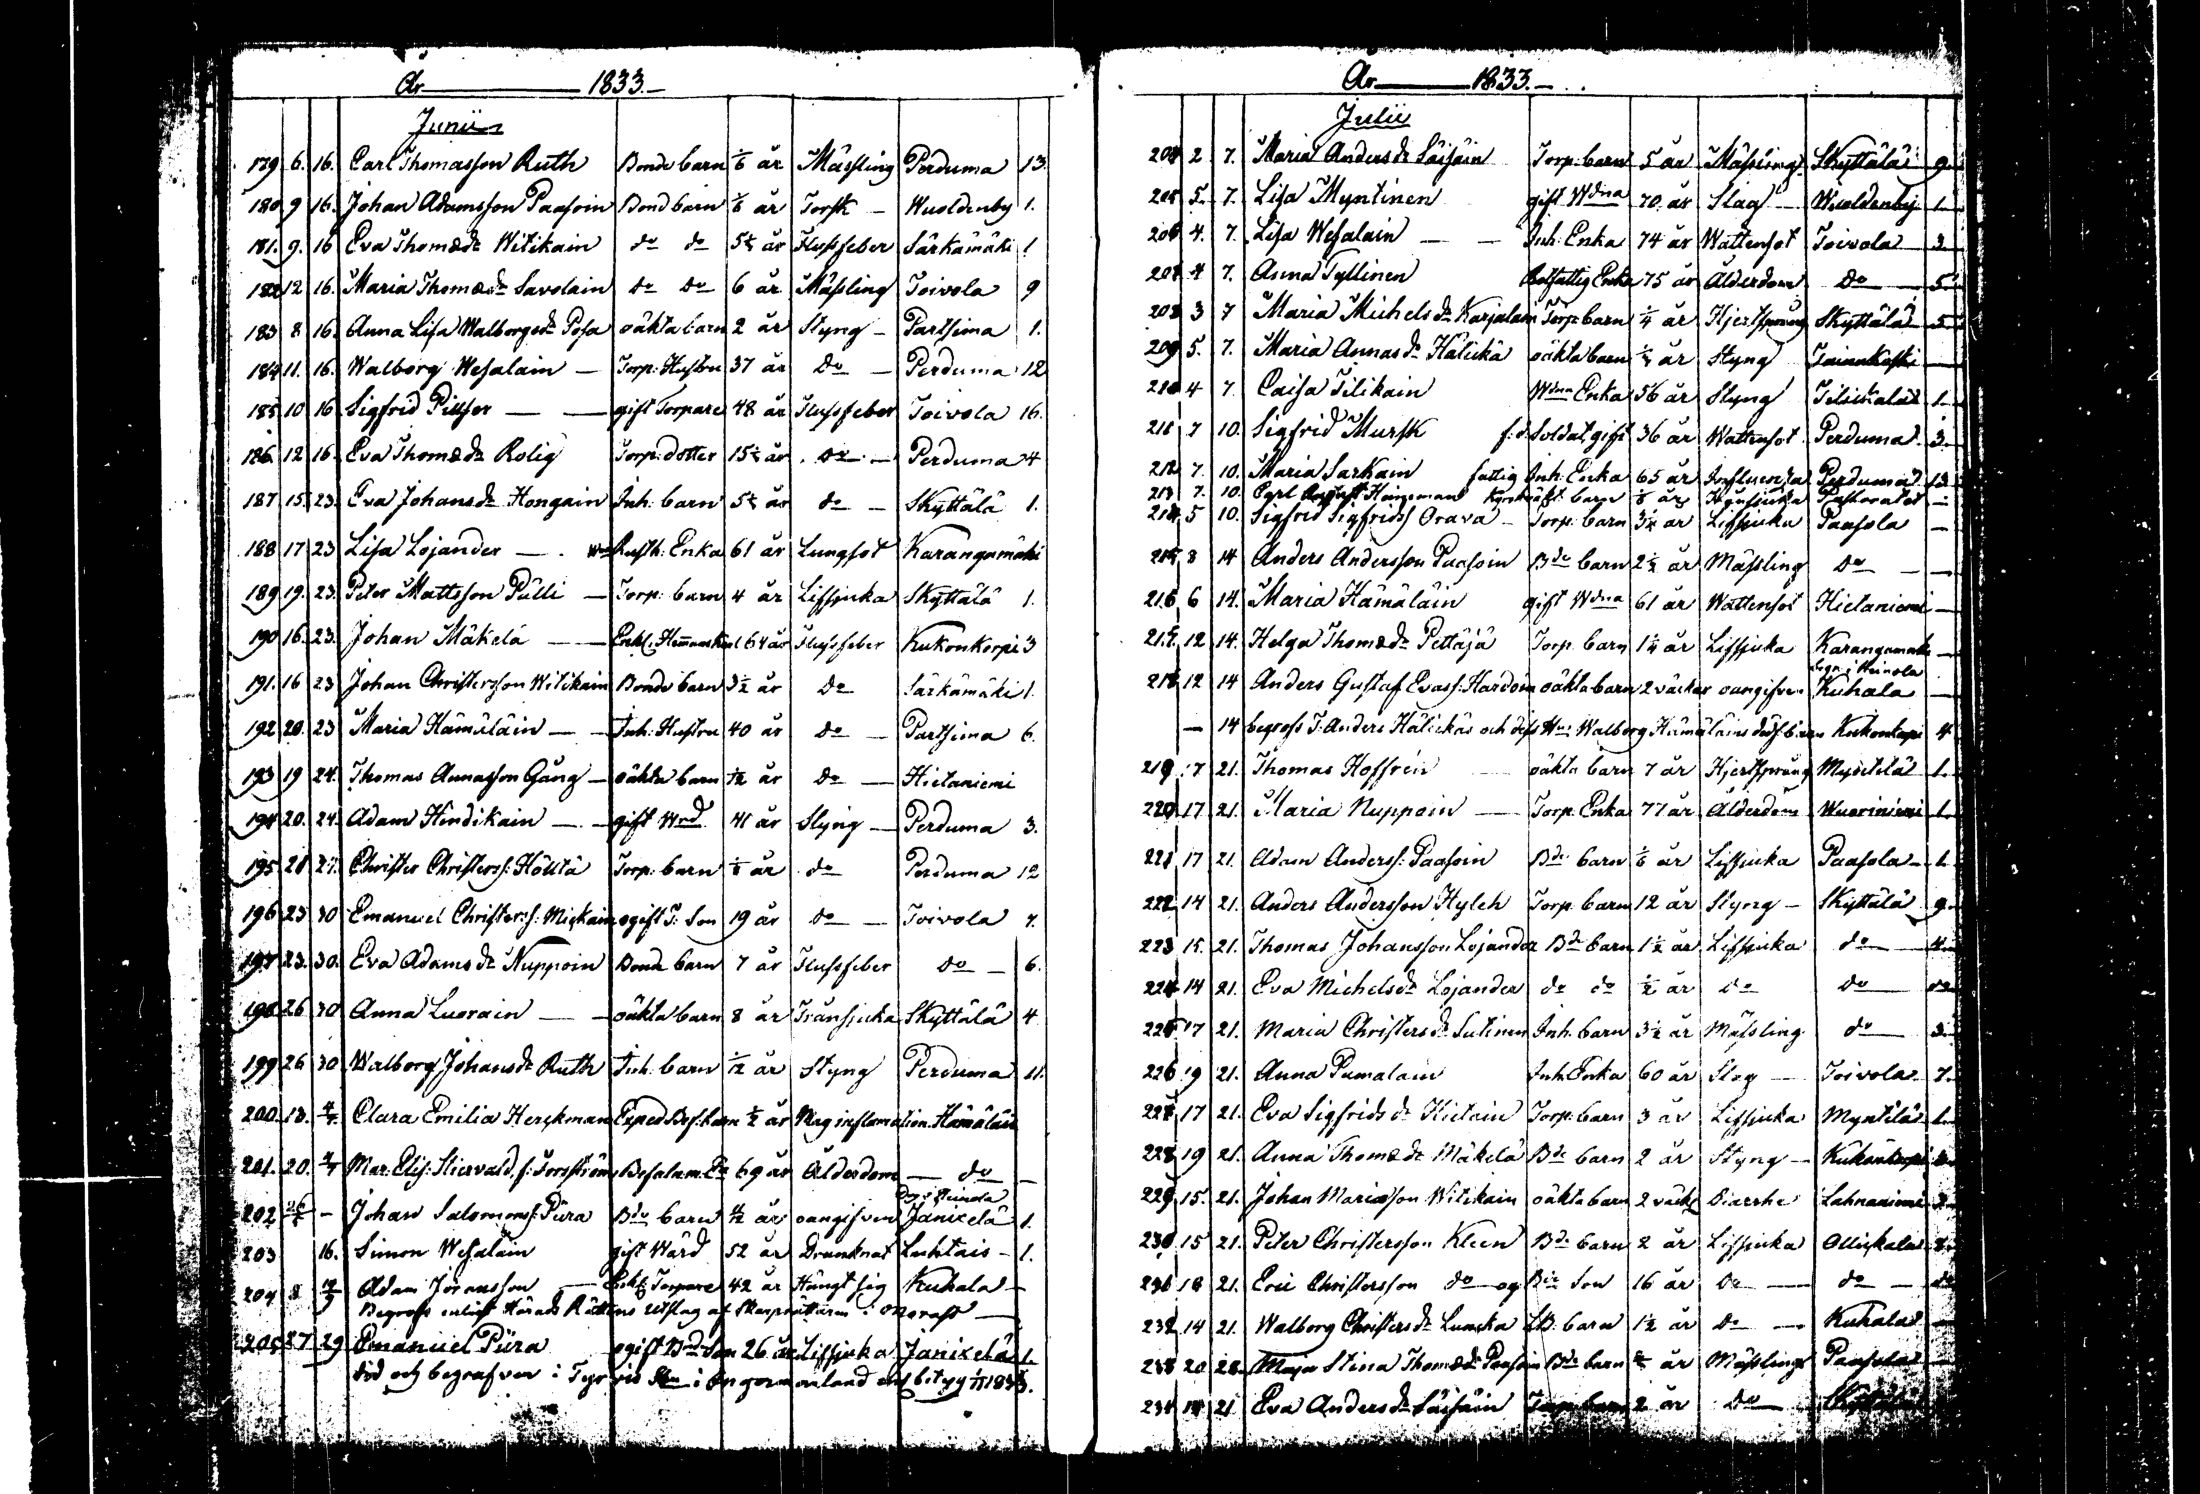 År 1833.
Junii
179 6. 16. Carl Thomasson Ruth Bonde barn 1/6 år Mässling Perduma 13.
180 9 16. Johan Adamsson Paasoin Bond barn 1/6 år Torsk - Wuoldenby 1.
181. 9. 16 Eva Thomæ dr Witikain do do år Flussfeber Särkämäki 1
182 12 16. Maria Thomæ dr Savolain do do 6 år Mässling Toivola 9
183 8 16. Anna Lisa Walborgs dr Posa oäkta barn 2 år Styng - Partsima 1.
184 11. 16. Walborg Wesalain - Torp. Hustru 37 år do - Perduma 12
185 10 16 Sigfrid Pillser - gift Torpare 48 år Flussfeber Toivola 16.
186. 12 16. Eva Thomæ dr Rolig Torp. dotter 15 1/2 år do - Perduma 4
187 15. 23. Eva Johans dr Hongain Inh. barn 5 1/2 år do - Skyttälä 1.
188 17 23 Lisa Lojander - Rusth. Enka 61 år Lungsot Karangamäki
189 19. 23. Peter Mattsson Pülli - Torp. barn 4 år Lifsjuka Skyttälä 1.
190 16. 23. Johan Mäkelä - 64 år Flussfeber Kukonkorpi 3
191. 16 23 Johan Christersson Witikain Bonde barn 3 1/2 år do Särkämäki 1.
192 20. 23 Maria Hämäläin - Inh. Hustru 40 år do - Partsima 6.
193 19 24. Thomas Annasson Gång - oäkta barn 1/12 år do - Hietaniemi
194 20. 24. Adam Hindikain - gift Wrd 41 år Styng - Perduma 3.
195 21 27. Christer Christerss. Höltä Torp. barn 1/8 år do Perduma 12
196 25 30 Emanuel Christerss. Mickain ogift T. Son 19 år do - Toivola 7.
197 23. 30. Eva Adams dr Nuppoin Bonde barn 7 år Flussfeber do - 6.
198 26 30 Anna Luorain - oäkta barn 8 år Tränsjuka Skyttälä 4
199 26 30 Walborg Johans dr Ruth Inh. barn 1/12 år Styng Perduma 11.
200. 13. 4/7 Clara Emilia Herckman Exped. Bef. barn 1/2 år inflamation Hämäläis
201. 20. 4/7 Mar. Elis. Stiervald. f. Torström 69 år Ålderdom - do -
202 26/5 - Johan Salomonss. Püra Bde barn år oangifven Janixelä 1.
203 16. Simon Wesalain gift Wärd 52 år Drunknat Luhtais - 1.
204 8 Adam Joransson - Torpare 42 år Hängt sig Kuhala -
Begrofs enligt Härads Rättens utslag af Skarprättaren i
205 27 29 Emanuel Püra ogift Bd Son 26 år Lifsjuka Janixelä 1.
död och begrafven i Tyr i Ingermanland 1833.

År 1833.
Julii
204 2 7. Maria Anders dr Säisäin Torp. barn 5 år Mässling Skyttälä 9.
205 5. 7. Lisa Myntinen gift Wdna 70 år Slag - Wuoldenby 1.
206 4. 7. Lisa Wesalain - Inh. Enka 74 år Wattensot Toivola 3.
207 4 7. Anna Tyllinen Enka 75 år Ålderdom do 5.
208 3 7 Maria Michels dr Karjalain Torp. barn 1/4 år Hjertsprång Skyttälä 5
209 5. 7. Maria Annas dr Hälickä oäkta barn år Styng -
210 4 7 Caisa Tilikain Wdna Enka 56 år Styng 1.
211 7 10. Sigfrid Mursk f.d. Soldat, gift 36 år Wattensot Perduma 3.
212 7. 10. Maria Sarkain fattig Inh. Enka 65 år Influensa Perduma 13
213 7. 10. Carl August Heineman barn år Pastoratet -
214 5 10. Sigfrid Sigfridss. Orava - Torp. barn 3 1/4 år Lifsjuka Paasola -
215 8 14 Anders Andersson Paasoin Bde barn 2 1/2 år Mässling do -
216 6 14. Maria Hämäläin gift Wdna 61 år Wattensot Hietaniemi -
217. 12 14. Helga Thomæ dr Pettäjä Torp. barn 1 1/4 år Lifsjuka Karangamäki -
218 12 14 Anders Gustaf Evass. Hardoin oäkta barn 2 väckor oangifven i Heinola Kuhala -
- 14 begrofs T. Anders Hälickäs och dess Hu: Walborg Hämäläins dödf. barn Kukonkorpi 4
219 17 21. Thomas Hoffrén oäkta barn 7 år Hjertsprång Myntilä 1.
220 17 21. Maria Nuppoin - Torp. Enka 77 år Ålderdom Wuoriniemi 1.
221 17 21. Adam Anderss. Paasoin Bde barn 1/6 år Lifsjuka Paasola - 1.
222 14 21. Anders Andersson Hyleh Torp. barn 12 år Styng - Skyttälä 9.
223 15. 21. Thomas Johansson Lojander Bde barn 1 1/2 år Lifsjuka do -
224 14 21. Eva Michels dr Lojander do do 1/2 år do do do
225 17 21. Maria Christers dr Sutinen Inh. barn 3 1/2 år Mässling do 3.
226 19 21. Anna Pumalain Inh. Enka 60 år Slag - Toivola 7.
227 17 21. Eva Sigfrids dr Hietain Torp. barn 3 år Lifsjuka Myntilä 1.
228 19 21. Anna Thomæ dr Mäkelä Bde barn 2 år Styng - Kukonkorpi
229 15. 21. Johan Mariasson Witikain oäkta barn 2 väck. Diarrhe Lahnaniemi 2
230 15 21. Peter Christersson Kleen Bde barn 2 år Lifsjuka Ollickala
231 18 21. Eric Christersson do og Bde Son 16 år do - do - do
232 14 21. Walborg Christers dr Luncka barn 1 1/2 år do - Kuhala
233 20 28. Maja Stina Thomæ dr Paasoin Bde barn år Mässling Paasola
234 18 21. Eva Anders dr Säisäin Torp. barn 2 år do Skyttälä